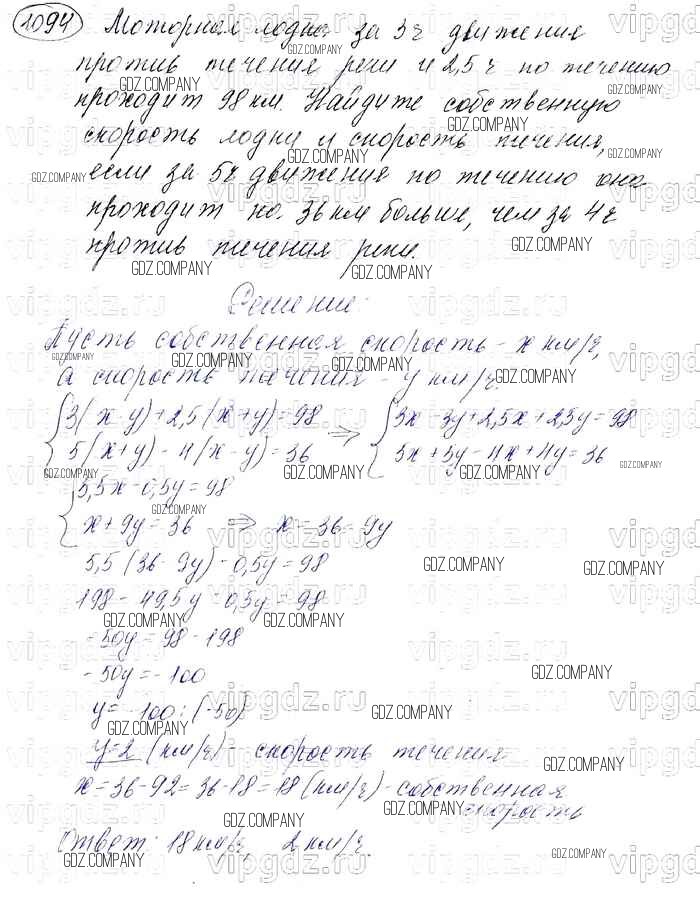 1094 Моторная лодка за 3 ч движения
против течения реки и 2,5 ч по течению
проходит 98 км. Найдите собственную
скорость лодки и скорость течения,
если за 5 ч движения по течению она
проходит на 36 км больше, чем за 4 ч
против течения реки.
Решение:
Пусть собственная скорость - x км/ч,
а скорость течения - y км/ч.
{3(x-y)+2,5(x+y)=98 => {3x-3y+2,5x+2,5y=98
5(x+y)-4(x-y)=36 5x+5y-4x+4y=36
{5,5x-0,5y=98
x+9y=36 => x=36-9y
5,5(36-9y)-0,5y=98
198-49,5y-0,5y=98
-50y=98-198
-50y=-100
y=-100:(-50)
y=2 (км/ч) - скорость течения
x=36-9·2=36-18=18 (км/ч) - собственная
скорость
Ответ: 18 км/ч, 2 км/ч.
GDZ.COMPANY
vipgdz.ru